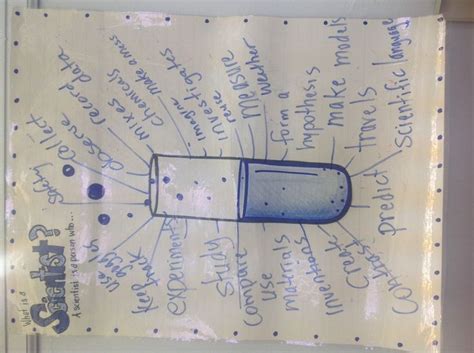 What is a
Scientist?
A scientist is a person who...
study
collect
observe
record
data
mixes
chemicals
make a mess
imagine
investigates
revise
measure
weather
form a
hypothesis
make models
travels
scientific language
use
goggles
Keep
track
experiment
study
compare
use
materials
inventions
create
contrast
predict